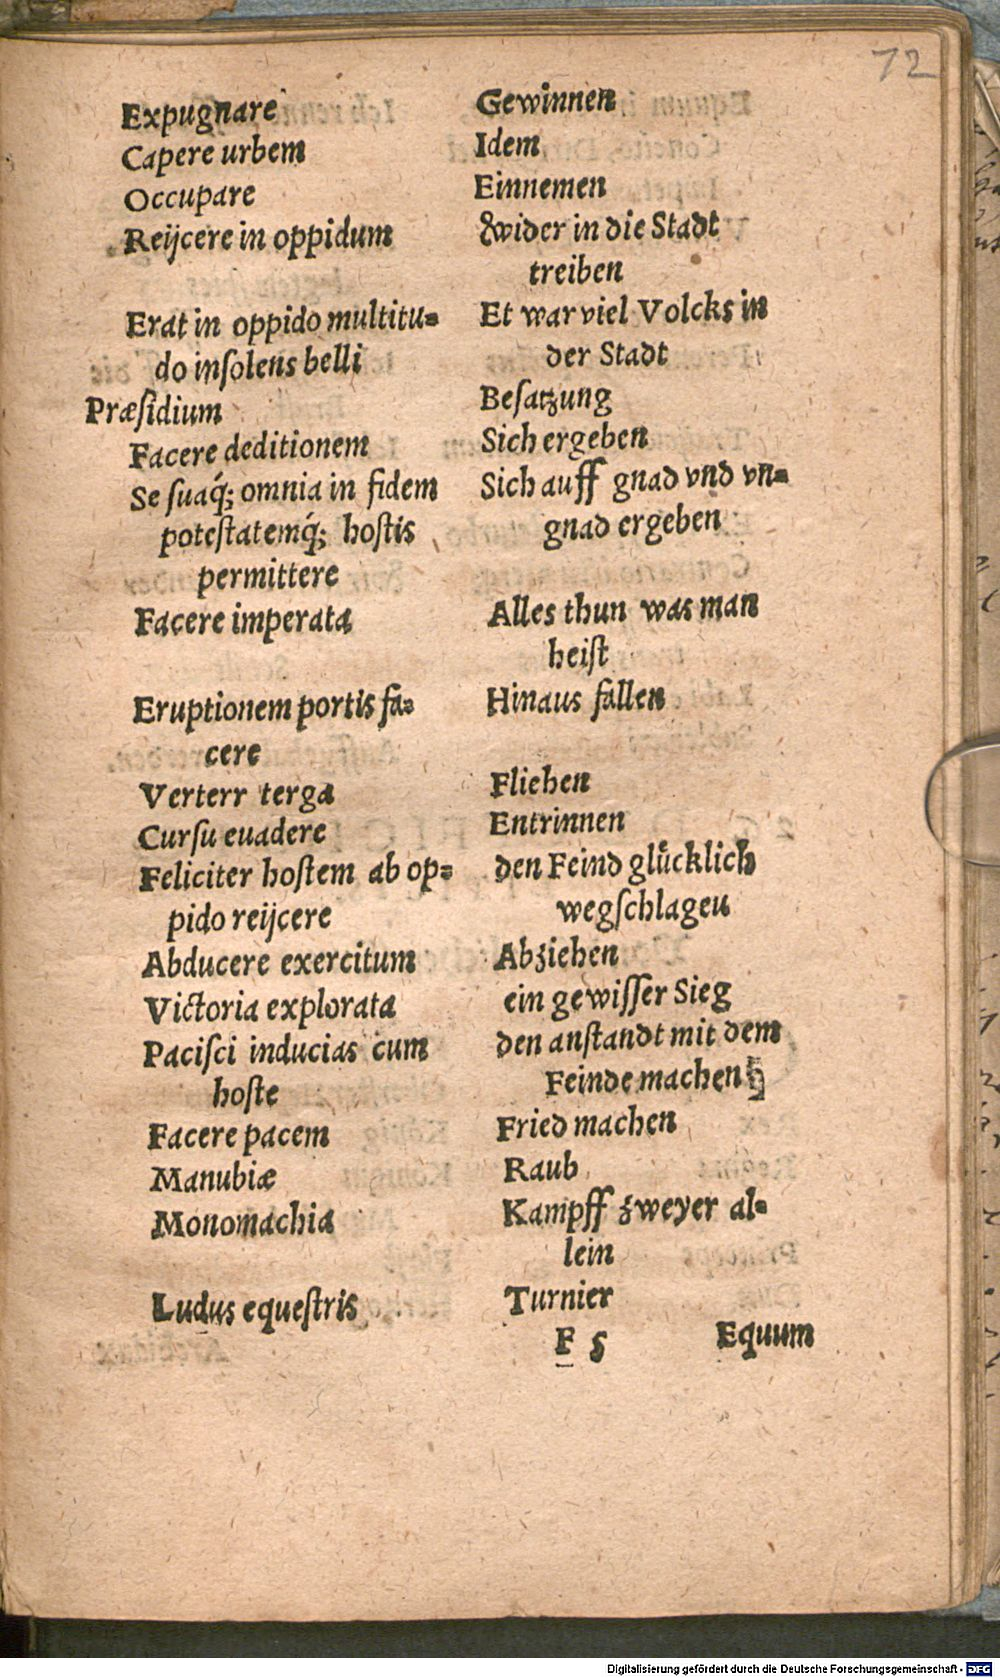 72
Expugnare Gewinnen
Capere urbem Idem
Occupare Einnemen
Reijcere in oppidum Zwider in die Stadt
treiben
Erat in oppido multitu- Et war viel Volcks in
do inſolens belli der Stadt
Præſidium Beſatzung
Facere deditionem Sich ergeben
Se ſuaq́; omnia in fidem Sich auff gnad vnd vn-
potestatemq́; hoſtis gnad ergeben
permittere
Facere imperata Alles thun was man
heiſt
Eruptionem portis fa- Hinaus fallen
cere
Verterr terga Fliehen
Curſu euadere Entrinnen
Feliciter hoſtem ab op- den Feind glücklich
pido reijcere wegſchlageu
Abducere exercitum Abziehen
Victoria explorata ein gewiſſer Sieg
Paciſci inducias cum den anſtandt mit dem
hoſte Feinde machen
Facere pacem Fried machen
Manubiæ Raub
Monomachia Kampff zweyer al-
lein
Ludus equeſtris Turnier
F 5 Equum
Digitalisierung gefördert durch die Deutsche Forschungsgemeinschaft - DFG